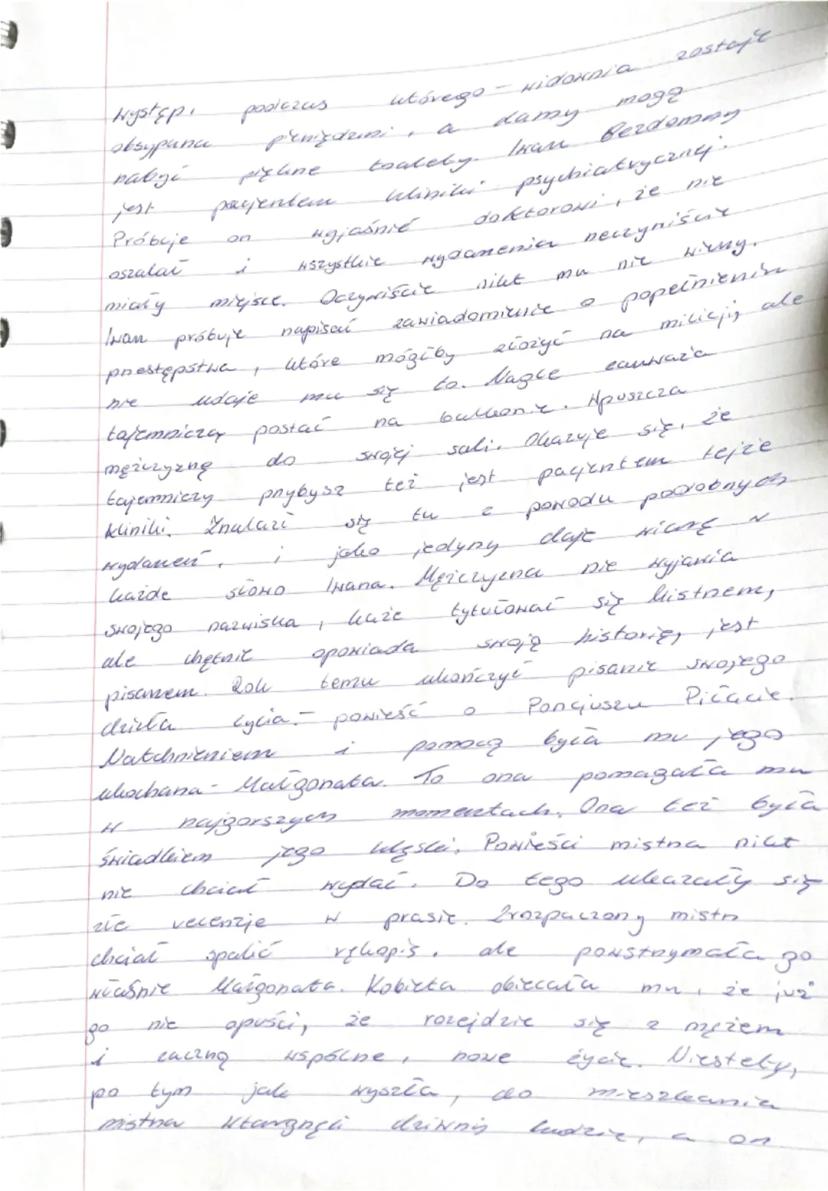 występ, podczas którego - widownia zostaje
obsypana pieniędzmi, a damy mogą
nabyć piękne toalety. Iwan Bezdomny
jest pacjentem kliniki psychiatrycznej.
Próbuje on wyjaśnić doktorowi, że nie
oszalał i wszystkie wydarzenia rzeczywiście
miały miejsce. Oczywiście nikt mu nie wierzy.
Iwan próbuje napisać zawiadomienie o popełnieniu
przestępstwa, które mógłby złożyć na milicji, ale
nie udaje mu się to. Nagle zauważa
tajemniczą postać na balkonie. Wpuszcza
mężczyznę do swojej sali. Okazuje się, że
tajemniczy przybysz też jest pacjentem tejże
kliniki. Znalazł się tu z powodu podobnych
wydarzeń, i jako jedyny daje wiarę w
każde słowo Iwana. Mężczyzna nie wyjawia
swojego nazwiska, każe tytułować się Mistrzem,
ale chętnie opowiada swoją historię, jest
pisarzem. Rok temu ukończył pisanie swojego
dzieła życia - powieść o Poncjuszu Piłacie.
Natchnieniem i pomocą była mu jego
ukochana - Małgorzata. To ona pomagała mu
w najgorszych momentach. Ona też była
świadkiem jego klęski. Powieści mistrza nikt
nie chciał wydać. Do tego ukazały się
złe recenzje w prasie. Zrozpaczony mistrz
chciał spalić rękopis, ale powstrzymała go
właśnie Małgorzata. Kobieta obiecała mu, że już
go nie opuści, że rozejdzie się z mężem
i zaczną wspólne, nowe życie. Niestety,
po tym jak wyszła, do mieszkania
mistrza wtargnęli dziwni ludzie, a on